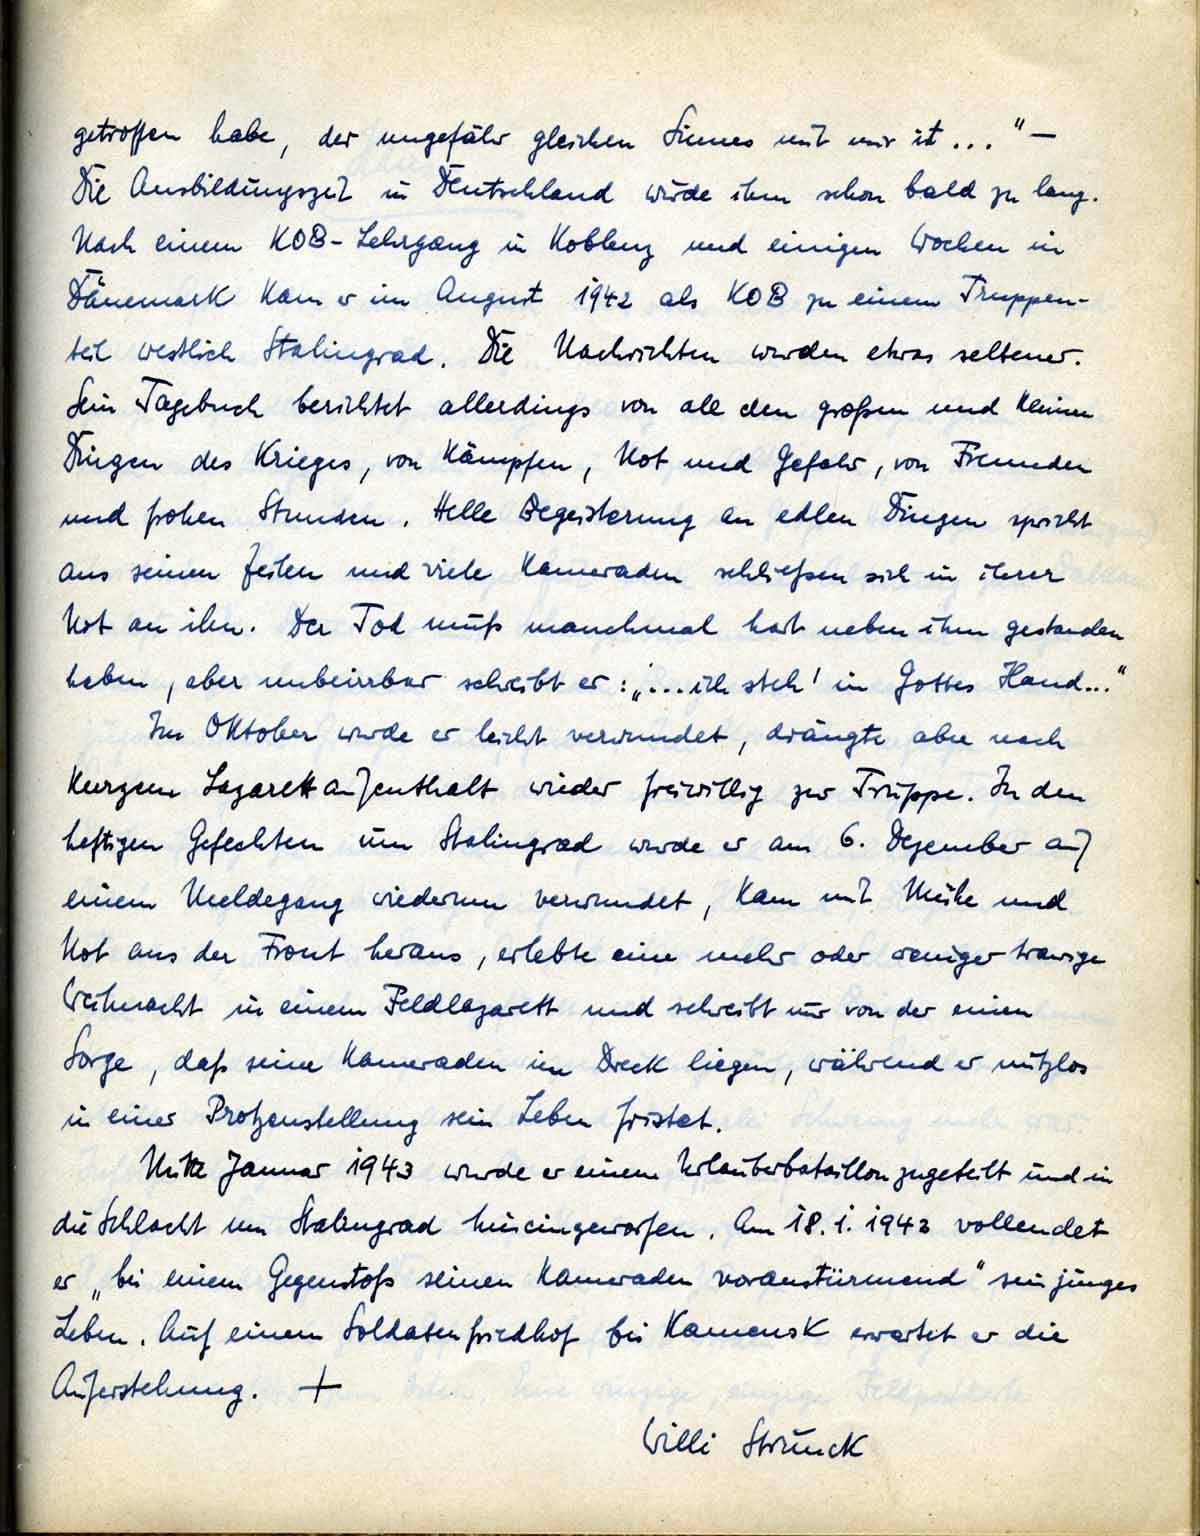 getroffen habe, der ungefähr gleichen Sinnes mit mir ist..." —
Die Ausbildungszeit in Deutschland würde ihm schon bald zu lang.
Nach einem KOB-Lehrgang in Koblenz und einigen Wochen in
Dänemark kam er im August 1942 als KOB zu einem Truppen-
teil westlich Stalingrad. Die Nachrichten wurden etwas seltener.
Sein Tagebuch berichtet allerdings von all den großen und kleinen
Dingen des Krieges, von Kämpfen, Not und Gefahr, von Freunden
und frohen Stunden. Helle Begeisterung an edlen Dingen spricht
aus seinen Zeilen und viele Kameraden schließen sich in ihrer
Not an ihn. Der Tod muß manchmal hart neben ihm gestanden
haben, aber unbeirrbar schreibt er: „...ich steh' in Gottes Hand..."
Im Oktober wurde er leicht verwundet, drängte aber nach
kurzem Lazarettaufenthalt wieder freiwillig zur Truppe. In den
heftigen Gefechten um Stalingrad wurde er am 6. Dezember auf
einem Meldegang wiederum verwundet, kam mit Mühe und
Not aus der Front heraus, erlebte eine mehr oder weniger traurige
Weihnacht in einem Feldlazarett und schreibt nur von der einen
Sorge, daß seine Kameraden im Dreck liegen, während er nutzlos
in einer Protzenstellung sein Leben fristet.
Mitte Januar 1943 wurde er einem Urlauberbataillon zugeteilt und in
die Schlacht um Stalingrad hineingeworfen. Am 18.1.1943 vollendet
er „bei einem Gegenstoß seinen Kameraden voranstürmend" sein junges
Leben. Auf einem Soldatenfriedhof bei Kamensk erwartet er die
Auferstehung. +
Willi Strunck